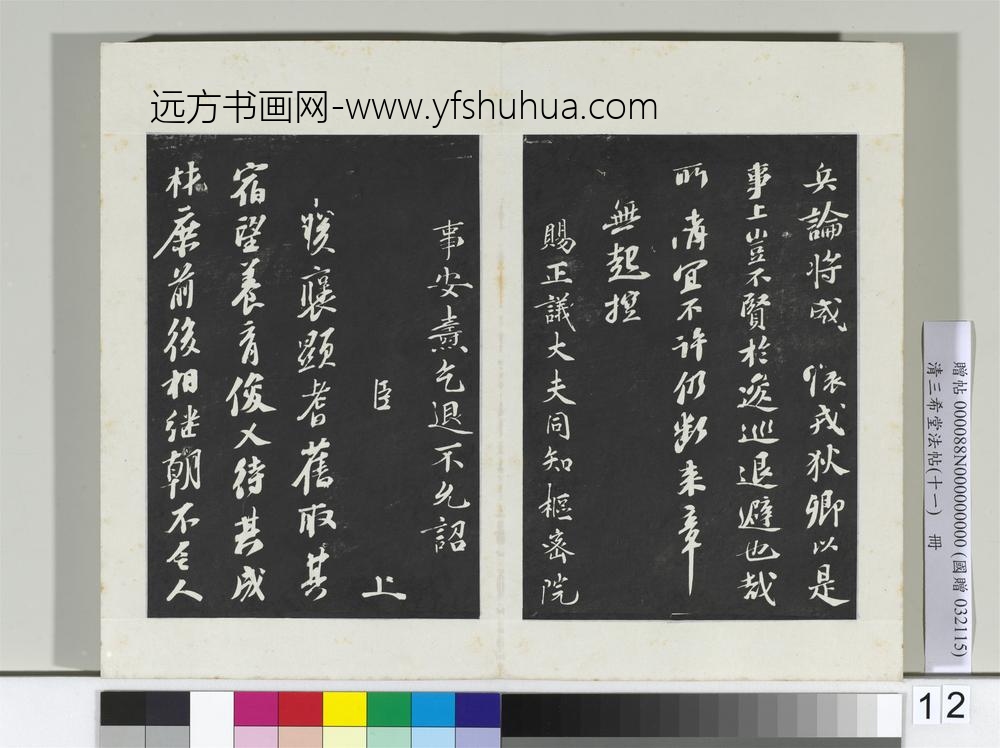 远方书画网-www.yfshuhua.com
兵論將威 懷戎狄卿以是
事上豈不賢於逡巡退避也哉
所請宜不許仍斷來章
無起控
賜正議大夫同知樞密院
事安燾乞退不允詔
臣 上
朕襃顯耆舊取其
宿望養育俊乂待其成
材庶前後相继朝不乏人
贈帖 000088N000000000 (國贈 032115)
清三希堂法帖(十一) 冊
12